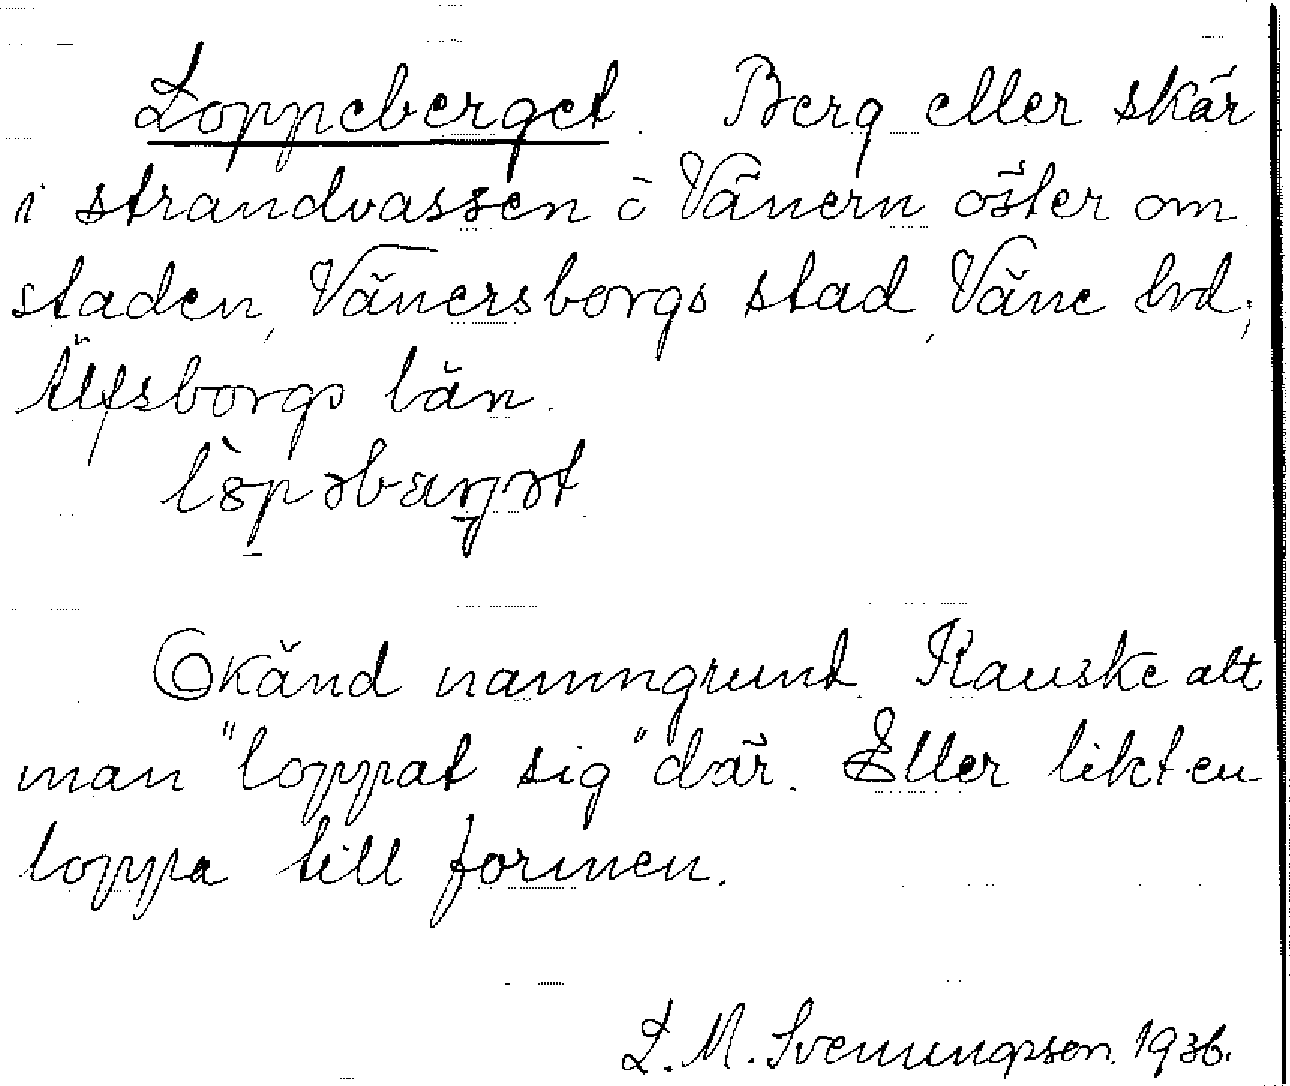 Loppeberget. Berg eller skär
i strandvassen i Vänern öster om
staden, Vänersborgs stad, Väne hd,
Älfsborgs län.
Okänd namngrund. Kanske att
man "loppat sig" där. Eller likt en
loppa till formen.
L. M. Svenungsson. 1936.